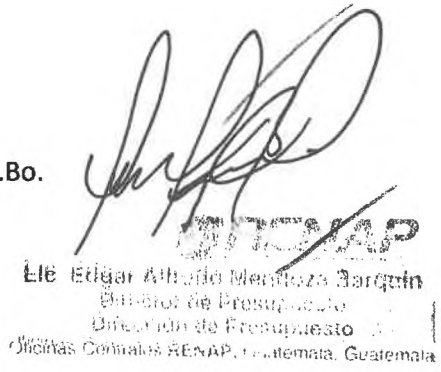 .Bo.
RENAP
Lic Edgar Alfredo Mendoza Barquín
Director de Presupuesto
Dirección de Presupuesto
Oficinas Centrales RENAP, Guatemala, Guatemala